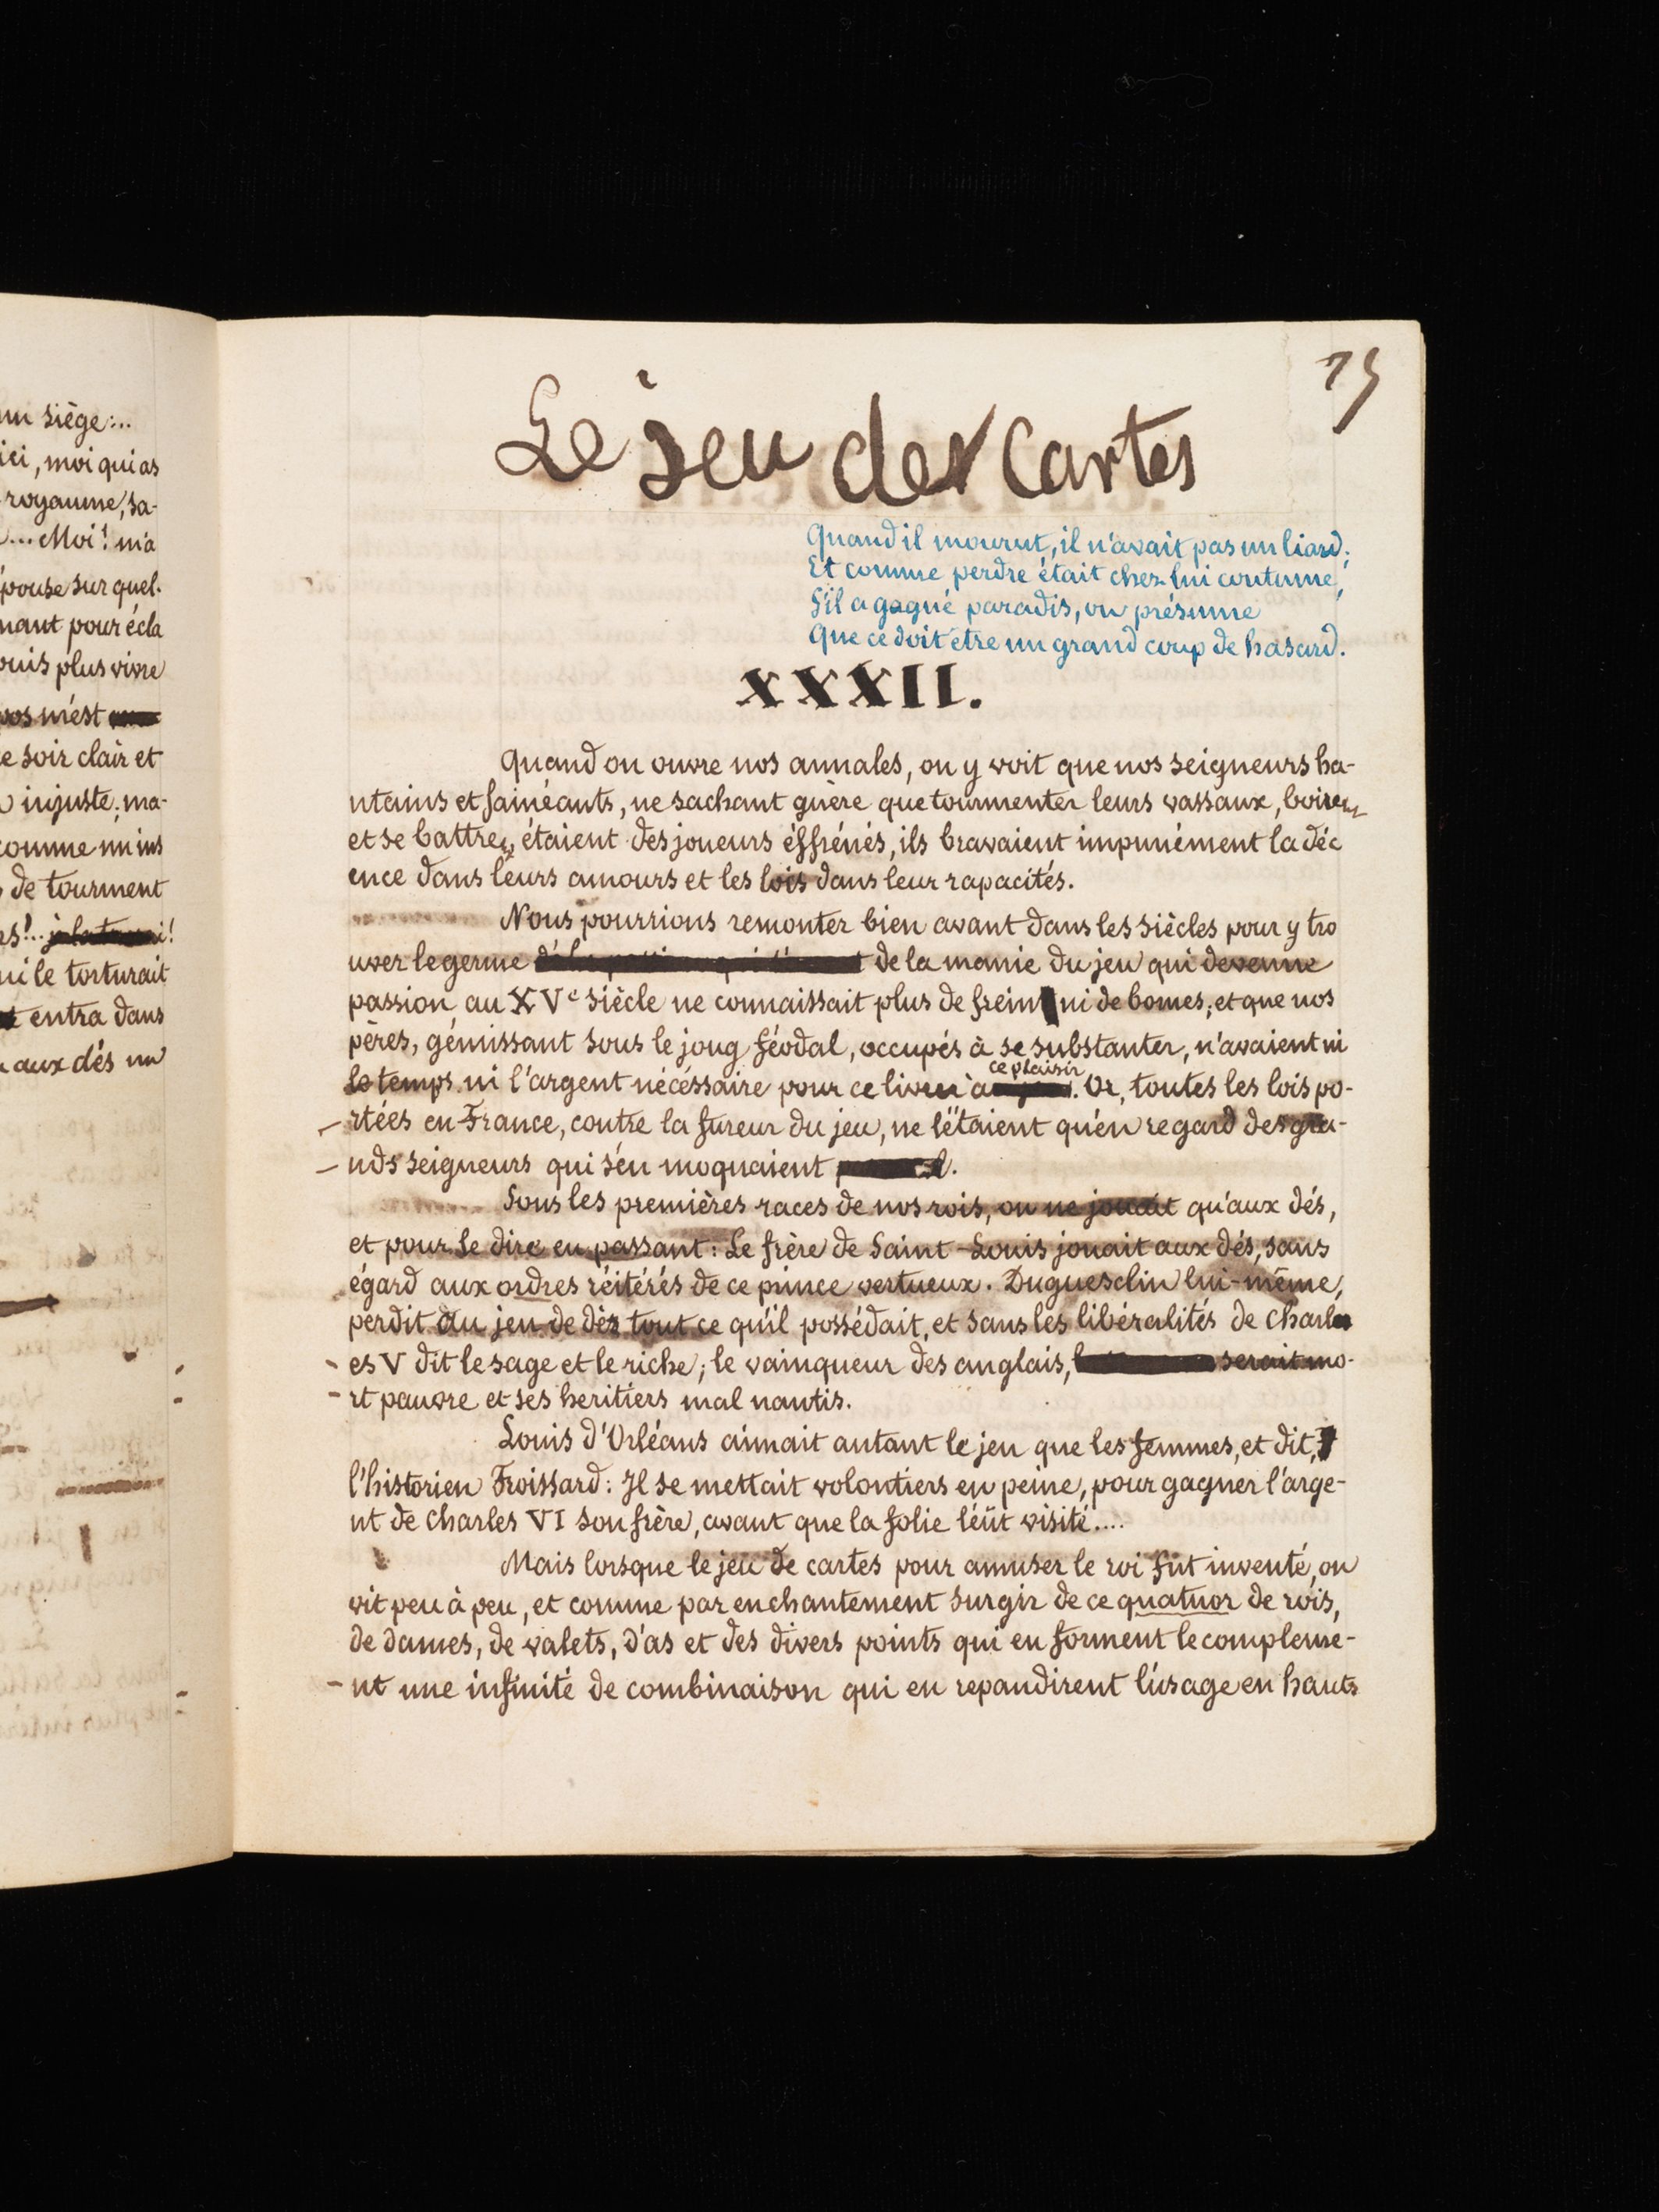 un siège...
ici, moi qui as
royaume, sa-
... Moi! m'a
épouse sur quel-
nant pour écla
puis plus vivre
pos m'est
e soir clair et
injuste; ma-
comme un ins
de tourment
es!... i!
ui le torturait
entra dans
aux dés un
75
Le jeu des Cartes
Quand il mourut, il n'avait pas un liard;
Et comme perdre était chez lui coutume,
S'il a gagné paradis, on présume
Que ce doit être un grand coup de hasard.
XXXII.
Quand on ouvre nos annales, on y voit que nos seigneurs ha-
utains et fainéants, ne sachant guère que tourmenter leurs vassaux, boire
et se battre, étaient des joueurs éffrénés, ils bravaient impunément la déc
ence dans leurs amours et les lois dans leur rapacités.
Nous pourrions remonter bien avant dans les siècles pour y tro
uver le germe de la manie du jeu qui devenue
passion au XVe siècle ne connaissait plus de frein ni de bornes; et que nos
pères, gémissant sous le joug féodal, occupés à se substanter, n'avaient ni
le temps ni l'argent nécéssaire pour ce livrer à ce plaisir. Or, toutes les lois po-
rtées en France, contre la fureur du jeu, ne l'étaient qu'en regard des gra-
nds seigneurs qui s'en moquaient .
Sous les premières races de nos rois, on ne jouait qu'aux dés,
et pour le dire en passant: Le frère de Saint-Louis jouait aux dés, sans
égard aux ordres réitérés de ce prince vertueux. Duguesclin lui-même,
perdit au jeu de dés tout ce qu'il possédait, et sans les libéralités de Charl
es V dit le sage et le riche; le vainqueur des anglais, serait mo-
rt pauvre et ses heritiers mal nantis.
Louis d'Orléans aimait autant le jeu que les femmes, et dit,
l'historien Froissard: Il se mettait volontiers en peine, pour gagner l'arge-
nt de Charles VI son frère, avant que la folie l'eût visité....
Mais lorsque le jeu de cartes pour amuser le roi fut inventé, on
vit peu à peu, et comme par enchantement surgir de ce quatuor de rois,
de dames, de valets, d'as et des divers points qui en forment le compleme-
nt une infinité de combinaison qui en repandirent l'usage en hauts